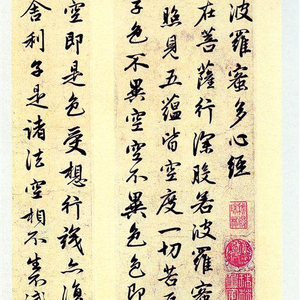 波羅蜜多心經
在菩薩行深般若波羅蜜
照見五蘊皆空度一切苦厄
子色不異空空不異色色即
空即是色受想行識亦復
舍利子是諸法空相不生滅